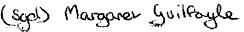 (Sgd) Margaret Guilfoyle